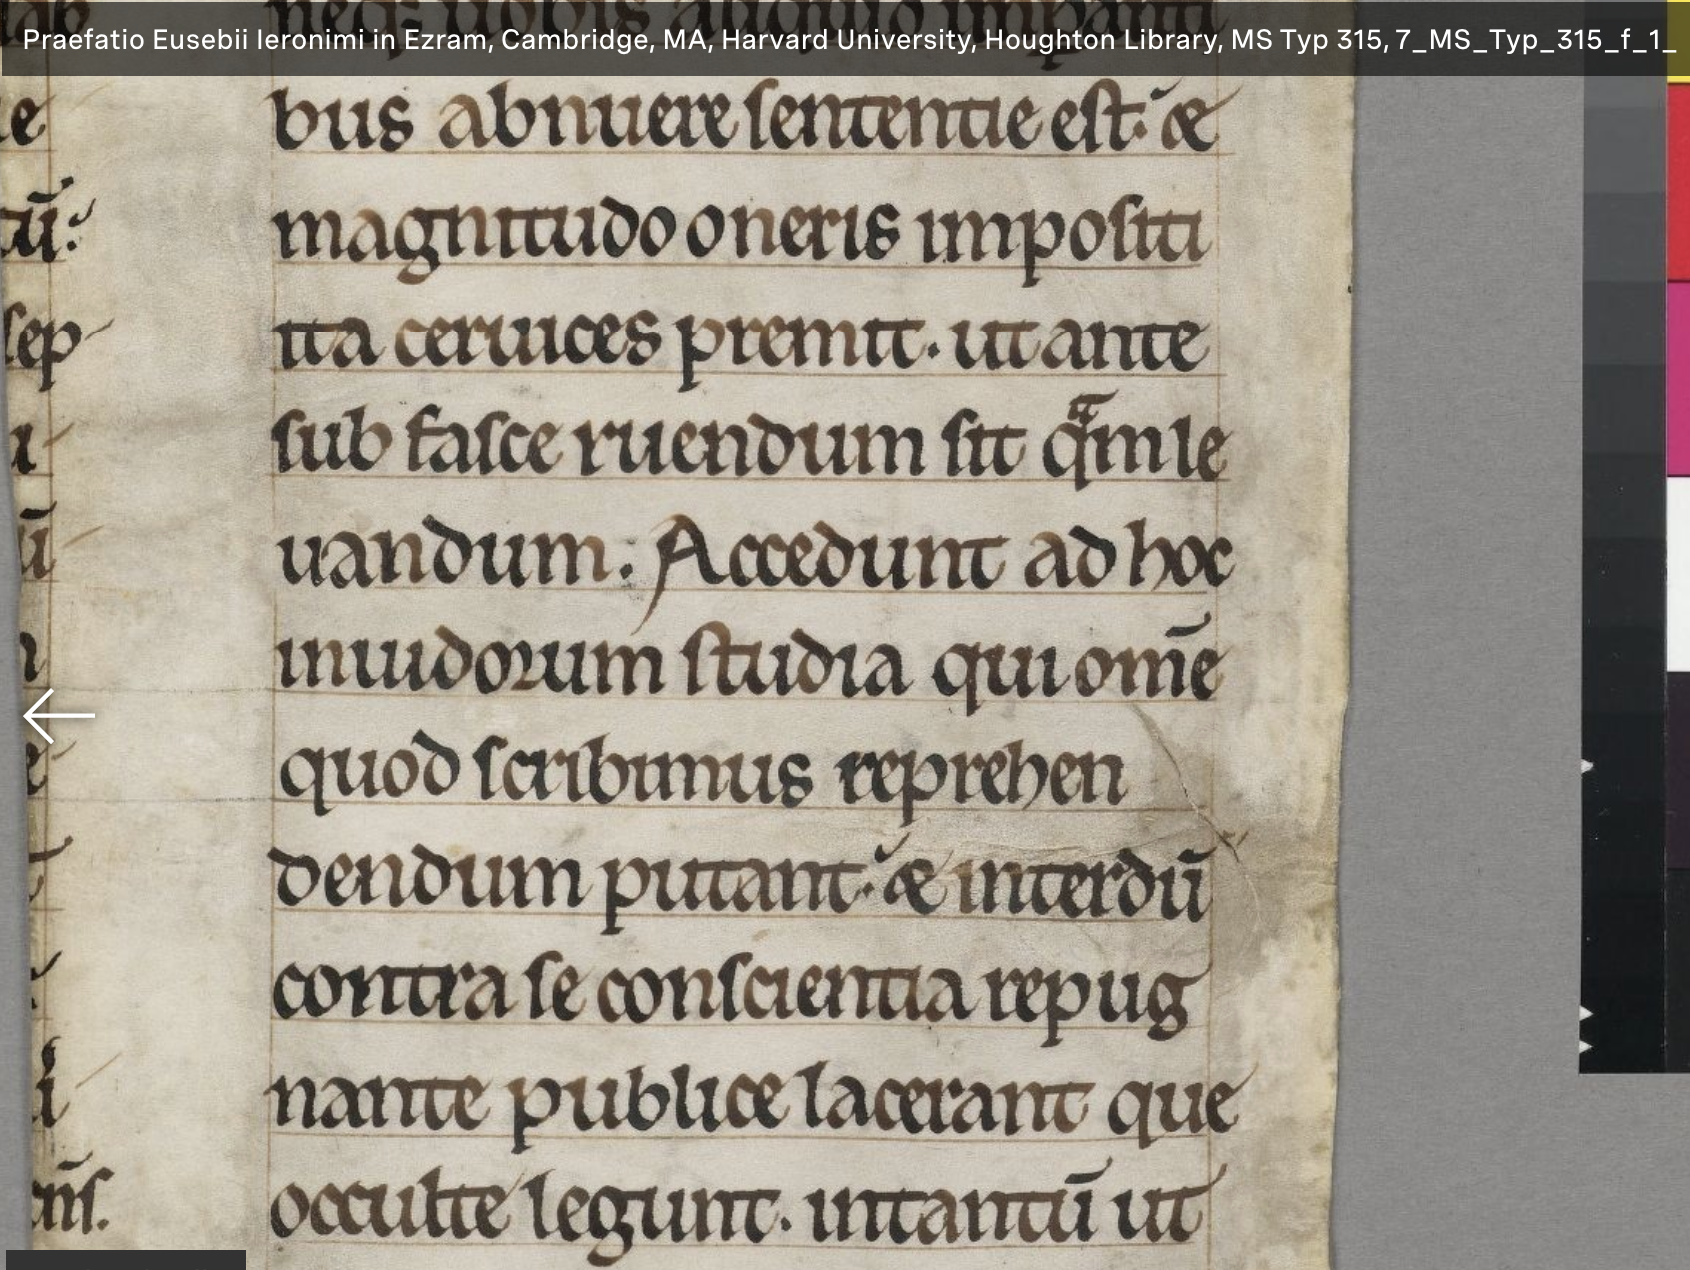 Praefatio Eusebii Ieronimi in Ezram, Cambridge, MA, Harvard University, Houghton Library, MS Typ 315, 7_MS_Typ_315_f_1_
neq; uobis aliquid imparti
bus abnuere sententie est. &
magnitudo oneris impositi
ita ceruices premit. ut ante
sub fasce ruendum sit qᵃm le
uandum. Accedunt ad hoc
inuidorum studia qui om̄e
quod scribimus reprehen
dendum putant. & interdū
contra se conscientia repug
nante publice lacerant que
occulte legunt. intantū ut
le
tū:
sep
u
ū
e